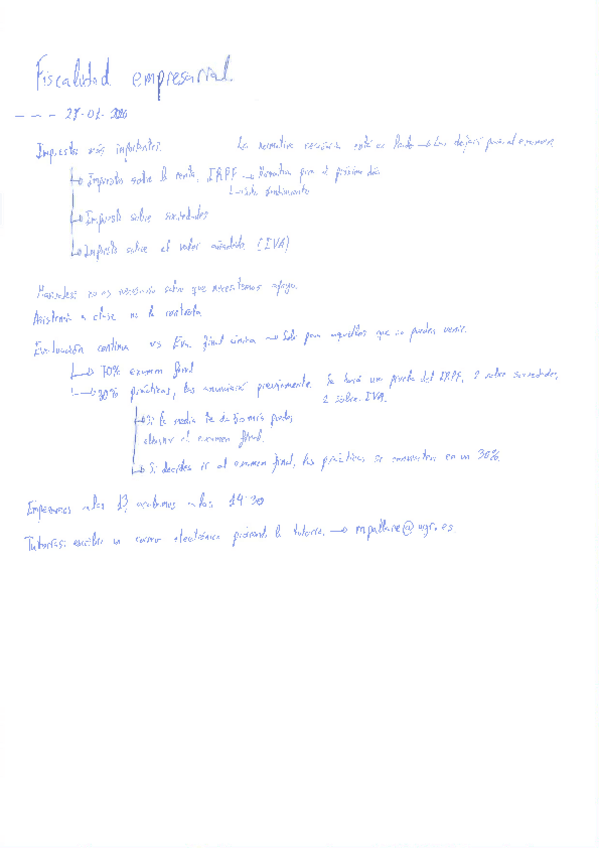 Fiscalidad empresarial.
27-01-
Impuestos más importantes: La normativa necesaria está en Prado → Los dejará para el examen
→ Impuesto sobre la renta, IRPF → Normativa para el próximo día
rendimiento
→ Impuesto sobre sociedades
→ Impuesto sobre el valor añadido (IVA)
no es necesario saber que necesitemos
Asistencia a clase no la controla
Evaluación continua vs Eva. final única → Solo para aquellos que no puedan venir.
→ 70% examen final
→ 30% prácticas, las anunciará previamente. Se hará una prueba del IRPF, 2 sobre sociedades,
2 sobre IVA.
→ Si la media te da puedes
eliminar el examen final.
→ Si decides ir al examen final, las prácticas se convierten en un 30%.
Empezamos a las 13, acabamos a las 14:30
Tutorías: escribir un correo electrónico pidiendo la tutoría. →